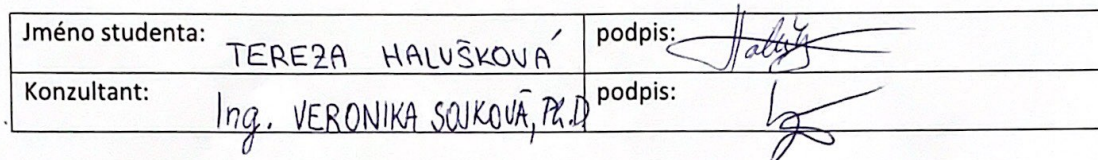 Jméno studenta: TEREZA HALUŠKOVÁ podpis:
Konzultant: Ing. VERONIKA SOJKOVÁ, Ph.D podpis: